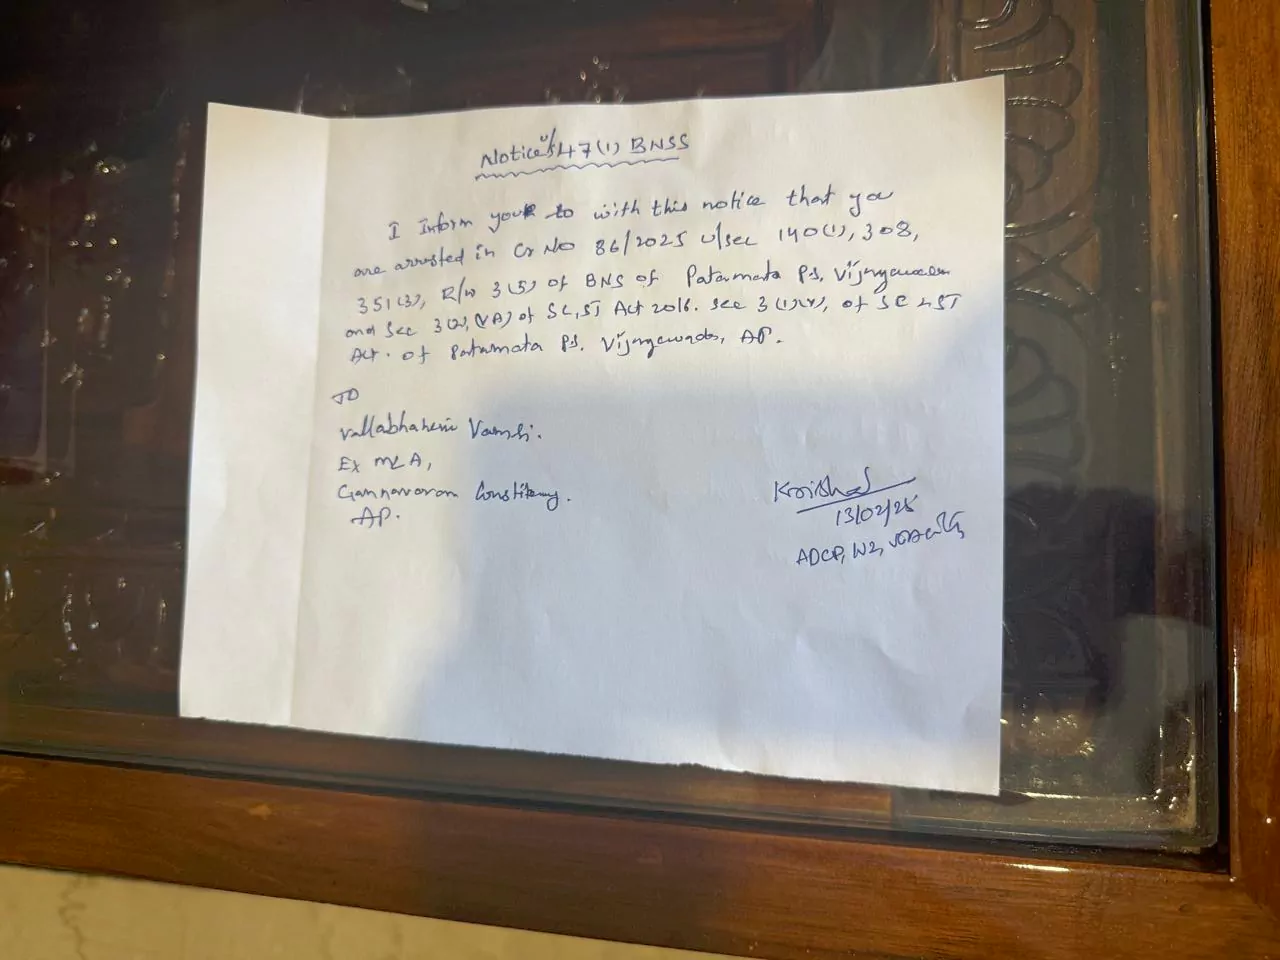 Notice u/s 47(1) BNSS
I Inform you to with this notice that you
are arrested in Cr No 86/2025 u/sec 140(1), 308,
351(3), R/w 3(5) of BNS of Patamata PS, Vijayawada
and Sec 3(2)(VA) of SC,ST Act 2016. Sec 3(1)(r), of SC & ST
Act. of Patamata PS. Vijayawada, AP.
TO
Vallabhaneni Vamsi.
Ex MLA,
Gannavaram Constituency.
AP.
13/02/25
ADCP, WZ,